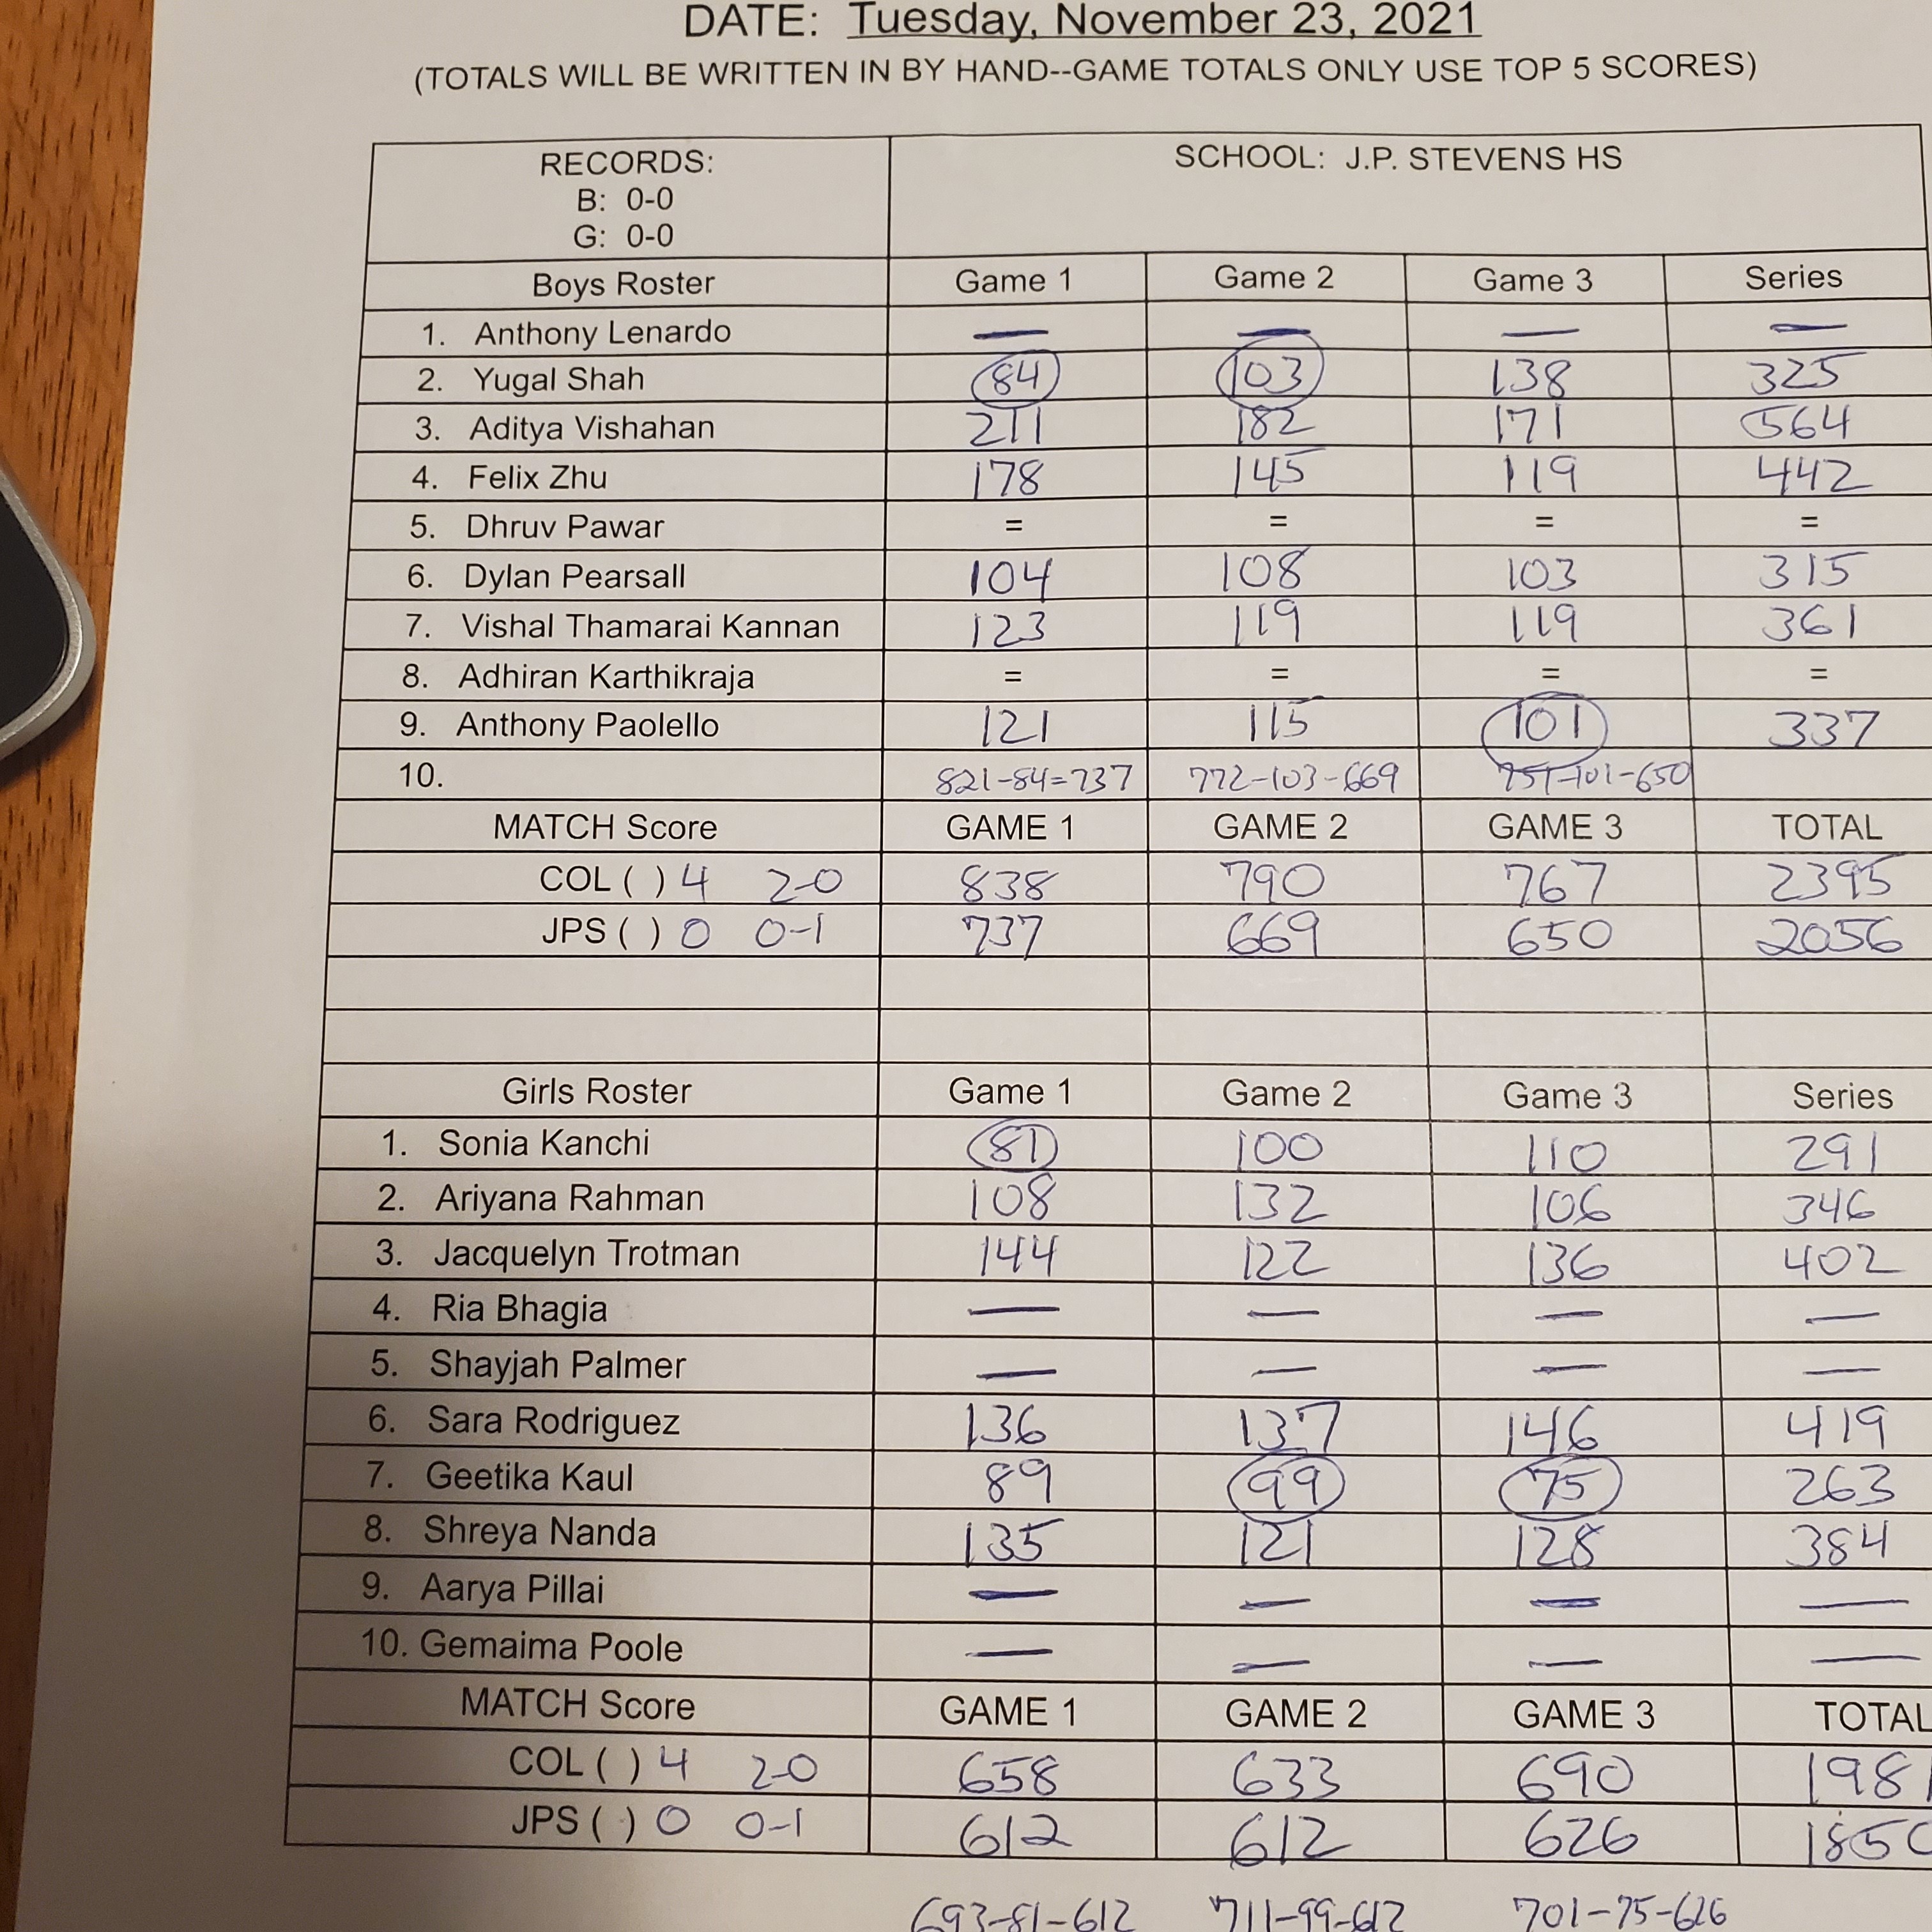 DATE: Tuesday, November 23, 2021
(TOTALS WILL BE WRITTEN IN BY HAND--GAME TOTALS ONLY USE TOP 5 SCORES)
RECORDS: SCHOOL: J.P. STEVENS HS
B: 0-0
G: 0-0
Boys Roster Game 1 Game 2 Game 3 Series
1. Anthony Lenardo — — — —
2. Yugal Shah 84 103 138 325
3. Aditya Vishahan 211 182 171 564
4. Felix Zhu 178 145 119 442
5. Dhruv Pawar = = = =
6. Dylan Pearsall 104 108 103 315
7. Vishal Thamarai Kannan 123 119 119 361
8. Adhiran Karthikraja = = = =
9. Anthony Paolello 121 115 101 337
10. 821-84=737 772-103-669 751-101-650
MATCH Score GAME 1 GAME 2 GAME 3 TOTAL
COL ( ) 4 2-0 838 790 767 2395
JPS ( ) 0 0-1 737 669 650 2056
Girls Roster Game 1 Game 2 Game 3 Series
1. Sonia Kanchi 81 100 110 291
2. Ariyana Rahman 108 132 106 346
3. Jacquelyn Trotman 144 122 136 402
4. Ria Bhagia — — — —
5. Shayjah Palmer — — — —
6. Sara Rodriguez 136 137 146 419
7. Geetika Kaul 89 99 75 263
8. Shreya Nanda 135 121 128 384
9. Aarya Pillai — — — —
10. Gemaima Poole — — — —
MATCH Score GAME 1 GAME 2 GAME 3 TOTAL
COL ( ) 4 2-0 658 633 690 1981
JPS ( ) 0 0-1 612 612 626 1850
693-81-612 711-99-612 701-75-626